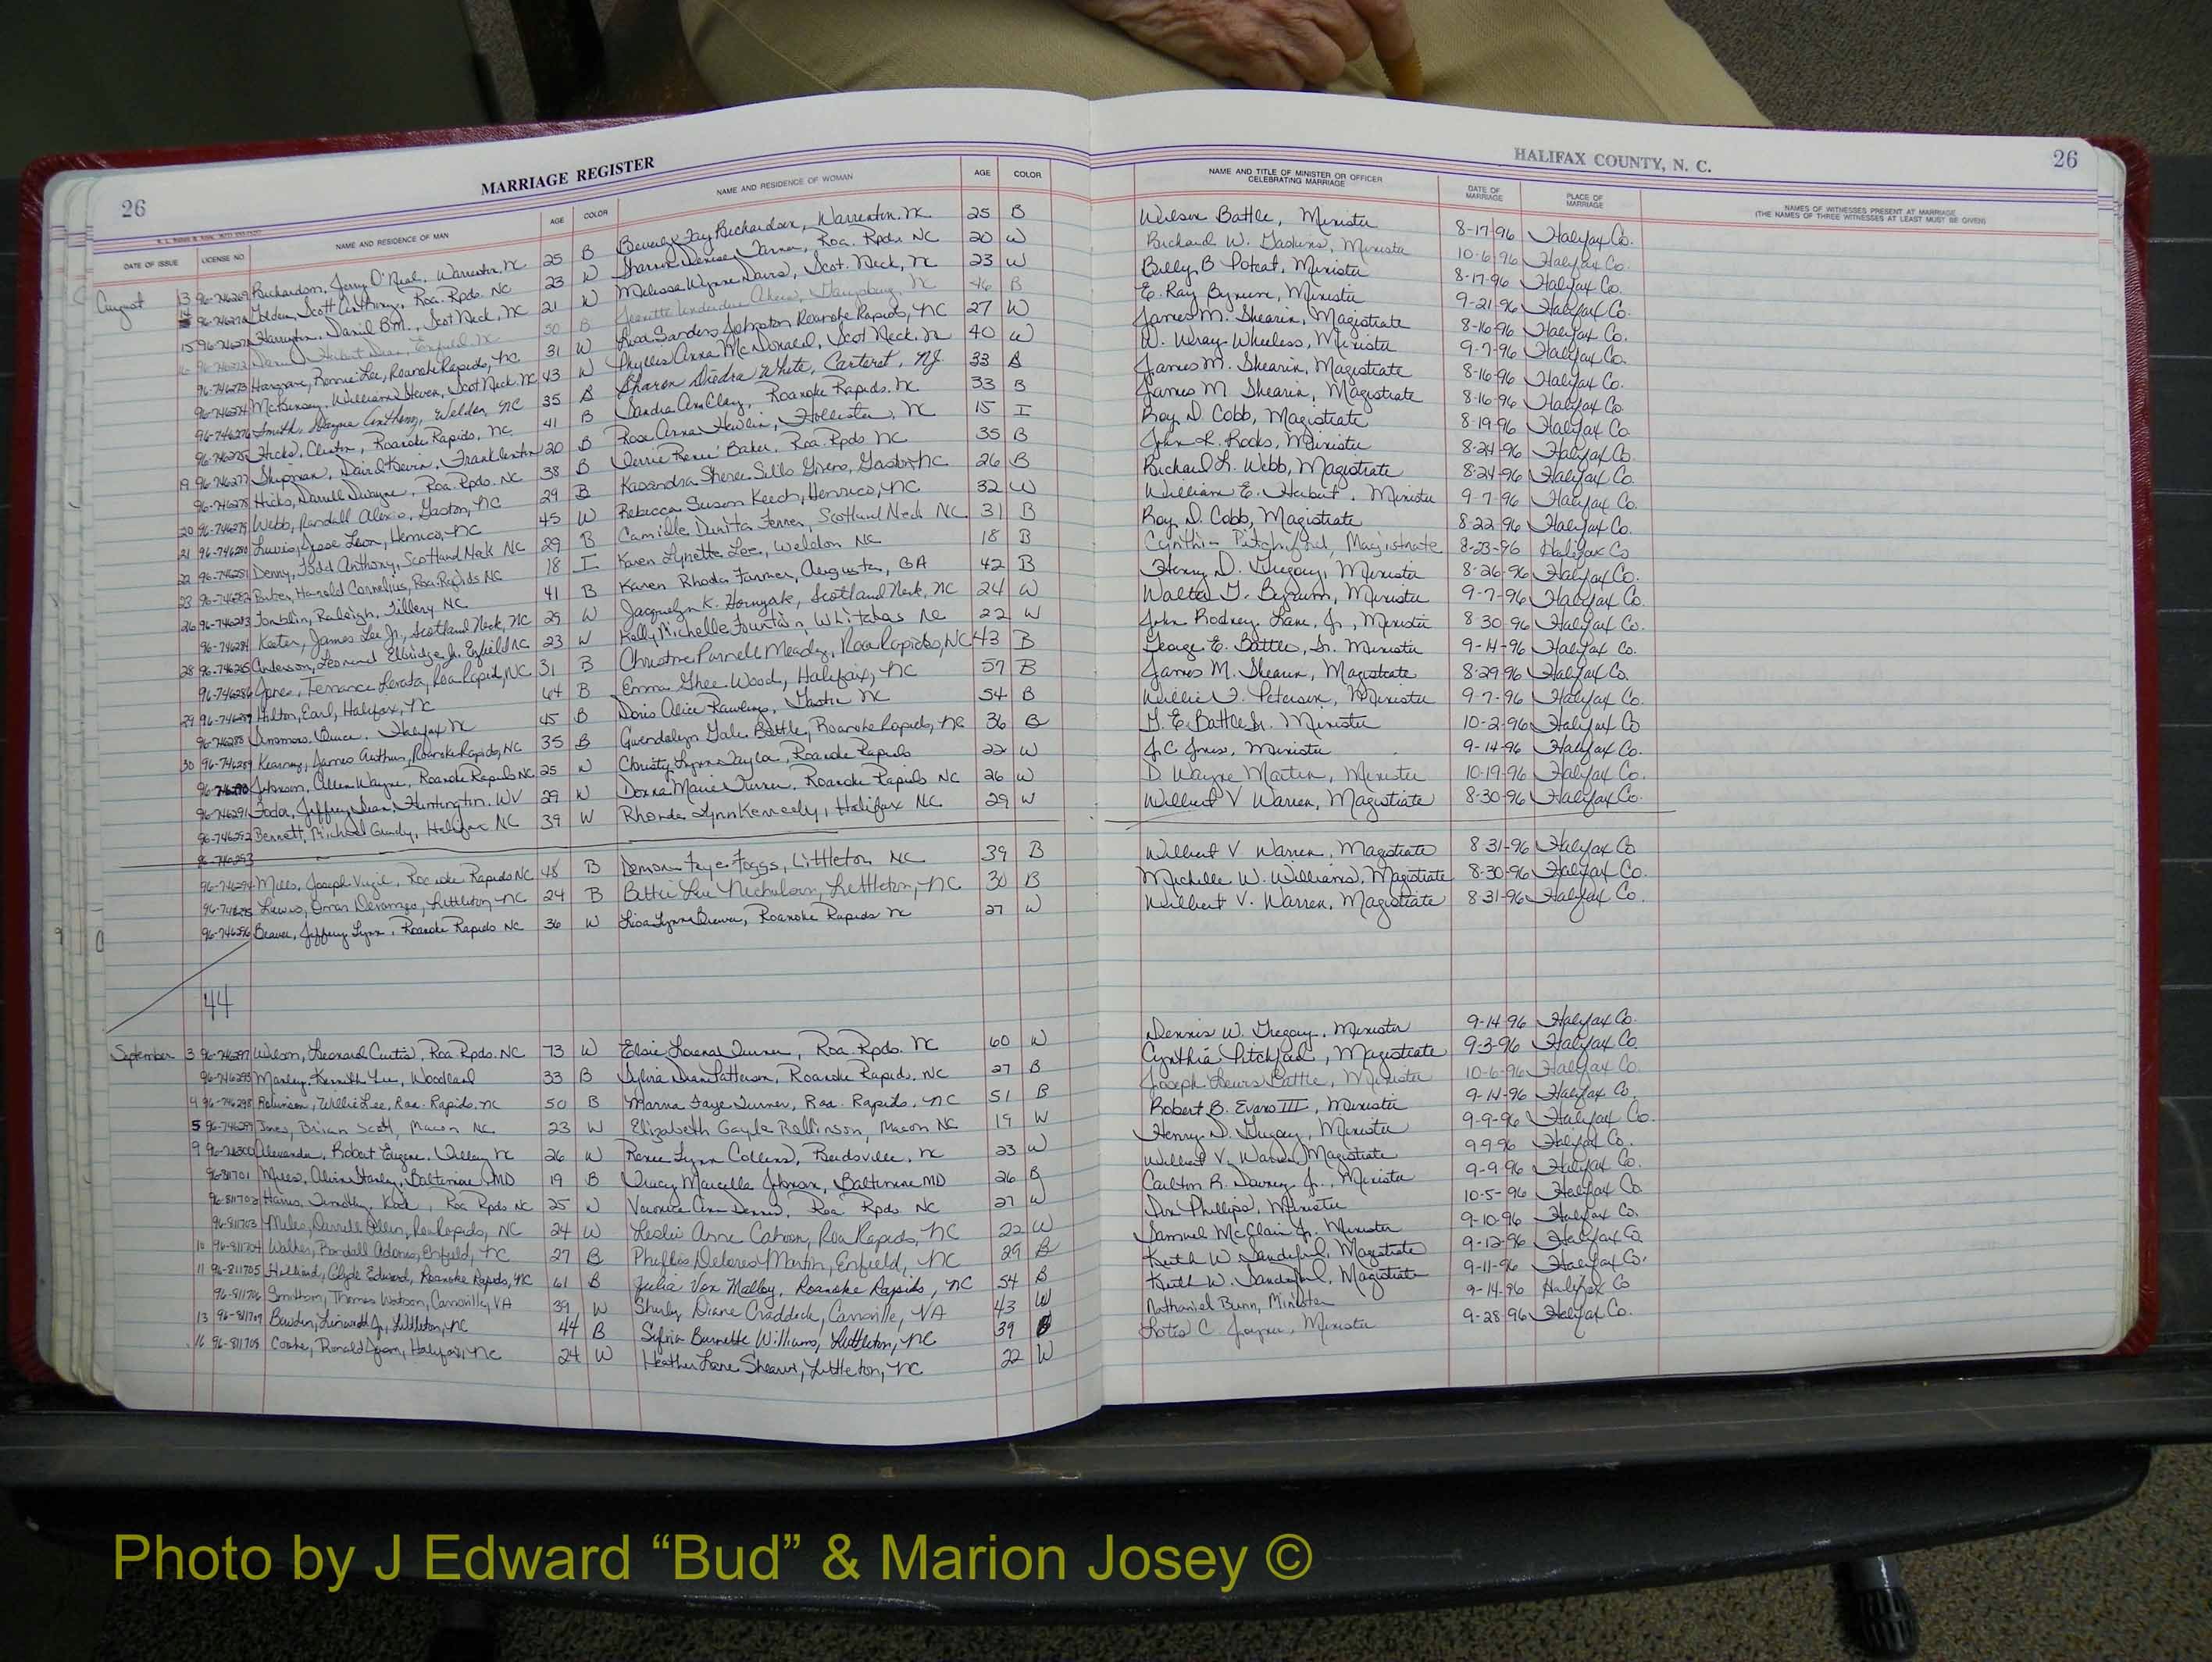 26 MARRIAGE REGISTER
HALIFAX COUNTY, N. C. 26
DATE OF ISSUE LICENSE NO. NAME AND RESIDENCE OF MAN AGE COLOR NAME AND RESIDENCE OF WOMAN AGE COLOR NAME AND TITLE OF MINISTER OR OFFICER CELEBRATING MARRIAGE DATE OF MARRIAGE PLACE OF MARRIAGE NAMES OF WITNESSES PRESENT AT MARRIAGE (THE NAMES OF THREE WITNESSES AT LEAST MUST BE GIVEN)
August 13 96-746269 Richardson, Jerry O'Neal, Warrenton, NC 25 B Beverly Fay Richardson, Warrenton, NC 25 B Wilson Battle, Minister 8-17-96 Halifax Co.
14 96-746270 Golden, Scott Anthony, Roa. Rpds. NC 23 W Sharon Denise Turner, Roa. Rpds. NC 20 W Richard W. Gaskins, Minister 10-6-96 Halifax Co.
15 96-746271 Harrington, David B., Scot Neck, NC 21 W Melissa Wynne Davis, Scot. Neck, NC 23 W Billy B Poteat, Minister 8-17-96 Halifax Co.
50 B 46 B E. Ray Bynum, Minister 9-21-96 Halifax Co.
96-746273 Hargrave, Ronnie Lee, Roanoke Rapids, NC 31 W Lisa Sanders Johnston Roanoke Rapids, NC 27 W James M. Shearin, Magistrate 8-16-96 Halifax Co.
96-746274 McKinney, William Steven, Scot Neck, NC 43 W Phyllis Anna McDonald, Scot Neck, NC 40 W W. Wray Wheeless, Minister 9-7-96 Halifax Co.
96-746276 Smith, Dwayne Anthony, Weldon, NC 35 B Sharon Diedra White, Carteret, NJ. 33 B James M. Shearin, Magistrate 8-16-96 Halifax Co.
96-746275 Hicks, Clinton, Roanoke Rapids, NC 41 B Sandra Ann Clay, Roanoke Rapids. NC 33 B James M Shearin, Magistrate 8-16-96 Halifax Co.
19 96-746277 Shipman, David Kevin, Franklinton 20 B Rose Anna Hewlin, Hollister, NC 15 I Roy D. Cobb, Magistrate 8-19-96 Halifax Co.
96-746278 Hicks, Darrell Dwayne, Roa. Rpds. NC 38 B Terrie Renee' Baker, Roa. Rpds NC 35 B John R. Rooks, Minister 8-24-96 Halifax Co.
20 96-746279 Webb, Randall Alexis, Gaston, NC 29 B Kasandra Sheree Sills Givens, Gaston, NC 26 B Richard L. Webb, Magistrate 8-24-96 Halifax Co.
21 96-746280 Lewis, Jesse Leon, Henrico, NC 45 W Rebecca Susan Keech, Henrico, NC 32 W William E. Herbert, Minister 9-7-96 Halifax Co.
22 96-746281 Denny, Todd Anthony, Scotland Neck NC 29 B Camille Dunita Fenner, Scotland Neck NC 31 B Roy D. Cobb, Magistrate 8-22-96 Halifax Co.
23 96-746282 Harold Cornelius, Roa. Rapids NC 18 I Karen Lynette Lee, Weldon NC 18 B Cynthia Pitchford, Magistrate 8-23-96 Halifax Co
26 96-746283 Tomblin, Raleigh, Tillery NC 41 B Karen Rhoda Farmer, Augusta, GA 42 B Henry D. Gregory, Minister 8-26-96 Halifax Co.
96-746284 Keeter, James Lee Jr., Scotland Neck, NC 25 W Jacquelyn K. Hornyak, Scotland Neck, NC 24 W Walter G. Bynum, Minister 9-7-96 Halifax Co.
28 96-746285 Anderson, Leonard Elbridge Jr. Enfield NC 23 W Kelly Michelle Fountain Whitakers NC 22 W John Rodney Lane, Jr., Minister 8 30 96 Halifax Co.
96-746286 Jones, Terrance Levata, Roa Rapid, NC 31 B Christine Purnell Meadey, Roa Rapids, NC 43 B George E. Battle, Sr. Minister 9-14-96 Halifax Co.
29 96-746287 Hilton, Earl, Halifax, NC 64 B Emma Ghee Wood, Halifax, NC 57 B James M. Shearin, Magistrate 8-29-96 Halifax Co.
96-746288 Simmons, Bruce, Halifax NC 45 B Doris Alice Rawlings, Gaston NC 54 B Willie F. Peterson, Minister 9-7-96 Halifax Co
30 96-746289 Kearney, James Arthur, Roanoke Rapids, NC 35 B Gwendolyn Gale Battle, Roanoke Rapids, NC 36 B G. E. Battle Sr. Minister 10-2-96 Halifax Co
96-746290 Johnson, Allen Wayne, Roanoke Rapids NC 25 W Christy Lynn Taylor, Roanoke Rapids 22 W J.C Jones, Minister 9-14-96 Halifax Co.
96-746291 Fodor, Jeffrey Dean, Huntington, WV 29 W Donna Marie Turner, Roanoke Rapids NC 26 W D Wayne Martin, Minister 10-19-96 Halifax Co.
96-746292 Bennett, Michael Grady, Halifax NC 39 W Rhonda Lynn Kennedy, Halifax NC 29 W Wilbert V Warren, Magistrate 8-30-96 Halifax Co.
96-746293
96-746294 Mills, Joseph Virgil, Roanoke Rapids NC 48 B Demona Faye Foggs, Littleton NC 39 B Wilbert V. Warren, Magistrate 8-31-96 Halifax Co
96-746295 Lewis, Omar Devango, Littleton, NC 24 B Bettie Lee Nicholson, Littleton, NC 30 B Michelle W. Williams, Magistrate 8-30-96 Halifax Co.
96-746296 Beaver, Jeffrey Lynn, Roanoke Rapids NC 36 W Lisa Lynn Brewer, Roanoke Rapids NC 27 W Wilbert V. Warren, Magistrate 8-31-96 Halifax Co.
44
September 3 96-746297 Wilson, Leonard Curtis, Roa Rpds. NC 73 W Elsie Lorena Turner, Roa. Rpds. NC 60 W Dennis W. Gregory, Minister 9-14-96 Halifax Co.
96-746295 Manley, Kenneth Lee, Woodland 33 B Sylvia Diane Patterson, Roanoke Rapids, NC 27 B Cynthia Pitchford, Magistrate 9-3-96 Halifax Co.
4 96-746298 Robinson, Willie Lee, Roa. Rapids, NC 50 B Marna Faye Turner, Roa. Rapids, NC 51 B Joseph Lewis Battle, Minister 10-6-96 Halifax Co.
5 96-746299 Jones, Brian Scott, Macon NC 23 W Elizabeth Gayle Rollinson, Macon NC 19 W Robert B. Evans III, Minister 9-14-96 Halifax Co.
9 96-746300 Alexander, Robert Eugene, NC 26 W Renee Lynn Collins, Reidsville, NC 23 W Henry D. Gregory, Minister 9-9-96 Halifax Co.
96-811701 Miles, Alvin Stanley, Baltimore, MD 19 B Tracy Marcella Johnson, Baltimore MD 26 B Wilbert V. Warren, Magistrate 9-9-96 Halifax Co.
96-811702 Harris, Timothy Karl, Roa Rpds NC 25 W Veronica Ann Dennis, Roa Rpds NC 27 W Carlton R. Jr., Minister 9-9-96 Halifax Co.
96-811703 Miles, Derrick Allen, Roa Rapids, NC 24 W Leslie Anne Cahoon, Roa Rapids, NC 22 W Phillips, Minister 10-5-96 Halifax Co.
10 96-811704 Walker, Randall Adonis, Enfield, NC 27 B Phyllis Delores Martin, Enfield, NC 29 B Samuel McClain Jr., Minister 9-10-96 Halifax Co.
11 96-811705 Hilliard, Clyde Edward, Roanoke Rapids, NC 61 B Julia Von Malloy, Roanoke Rapids, NC 54 B Keith W. Sandeford, Magistrate 9-12-96 Halifax Co
96-811706 Smithson, Thomas Watson, VA 39 W Shirley Diane Craddock, VA 43 W Keith W. Sandeford, Magistrate 9-11-96 Halifax Co.
13 96-811707 Bowden, Linwood Jr., Littleton, NC 44 B Sylvia Burnette Williams, Littleton, NC 39 B Nathaniel Bunn, Minister 9-14-96 Halifax Co
16 96-811708 Cooke, Ronald Jason, Halifax, NC 24 W Heather Lane Shearin, Littleton, NC 22 W C. Joyner, Minister 9-28-96 Halifax Co.
Photo by J Edward “Bud” & Marion Josey ©